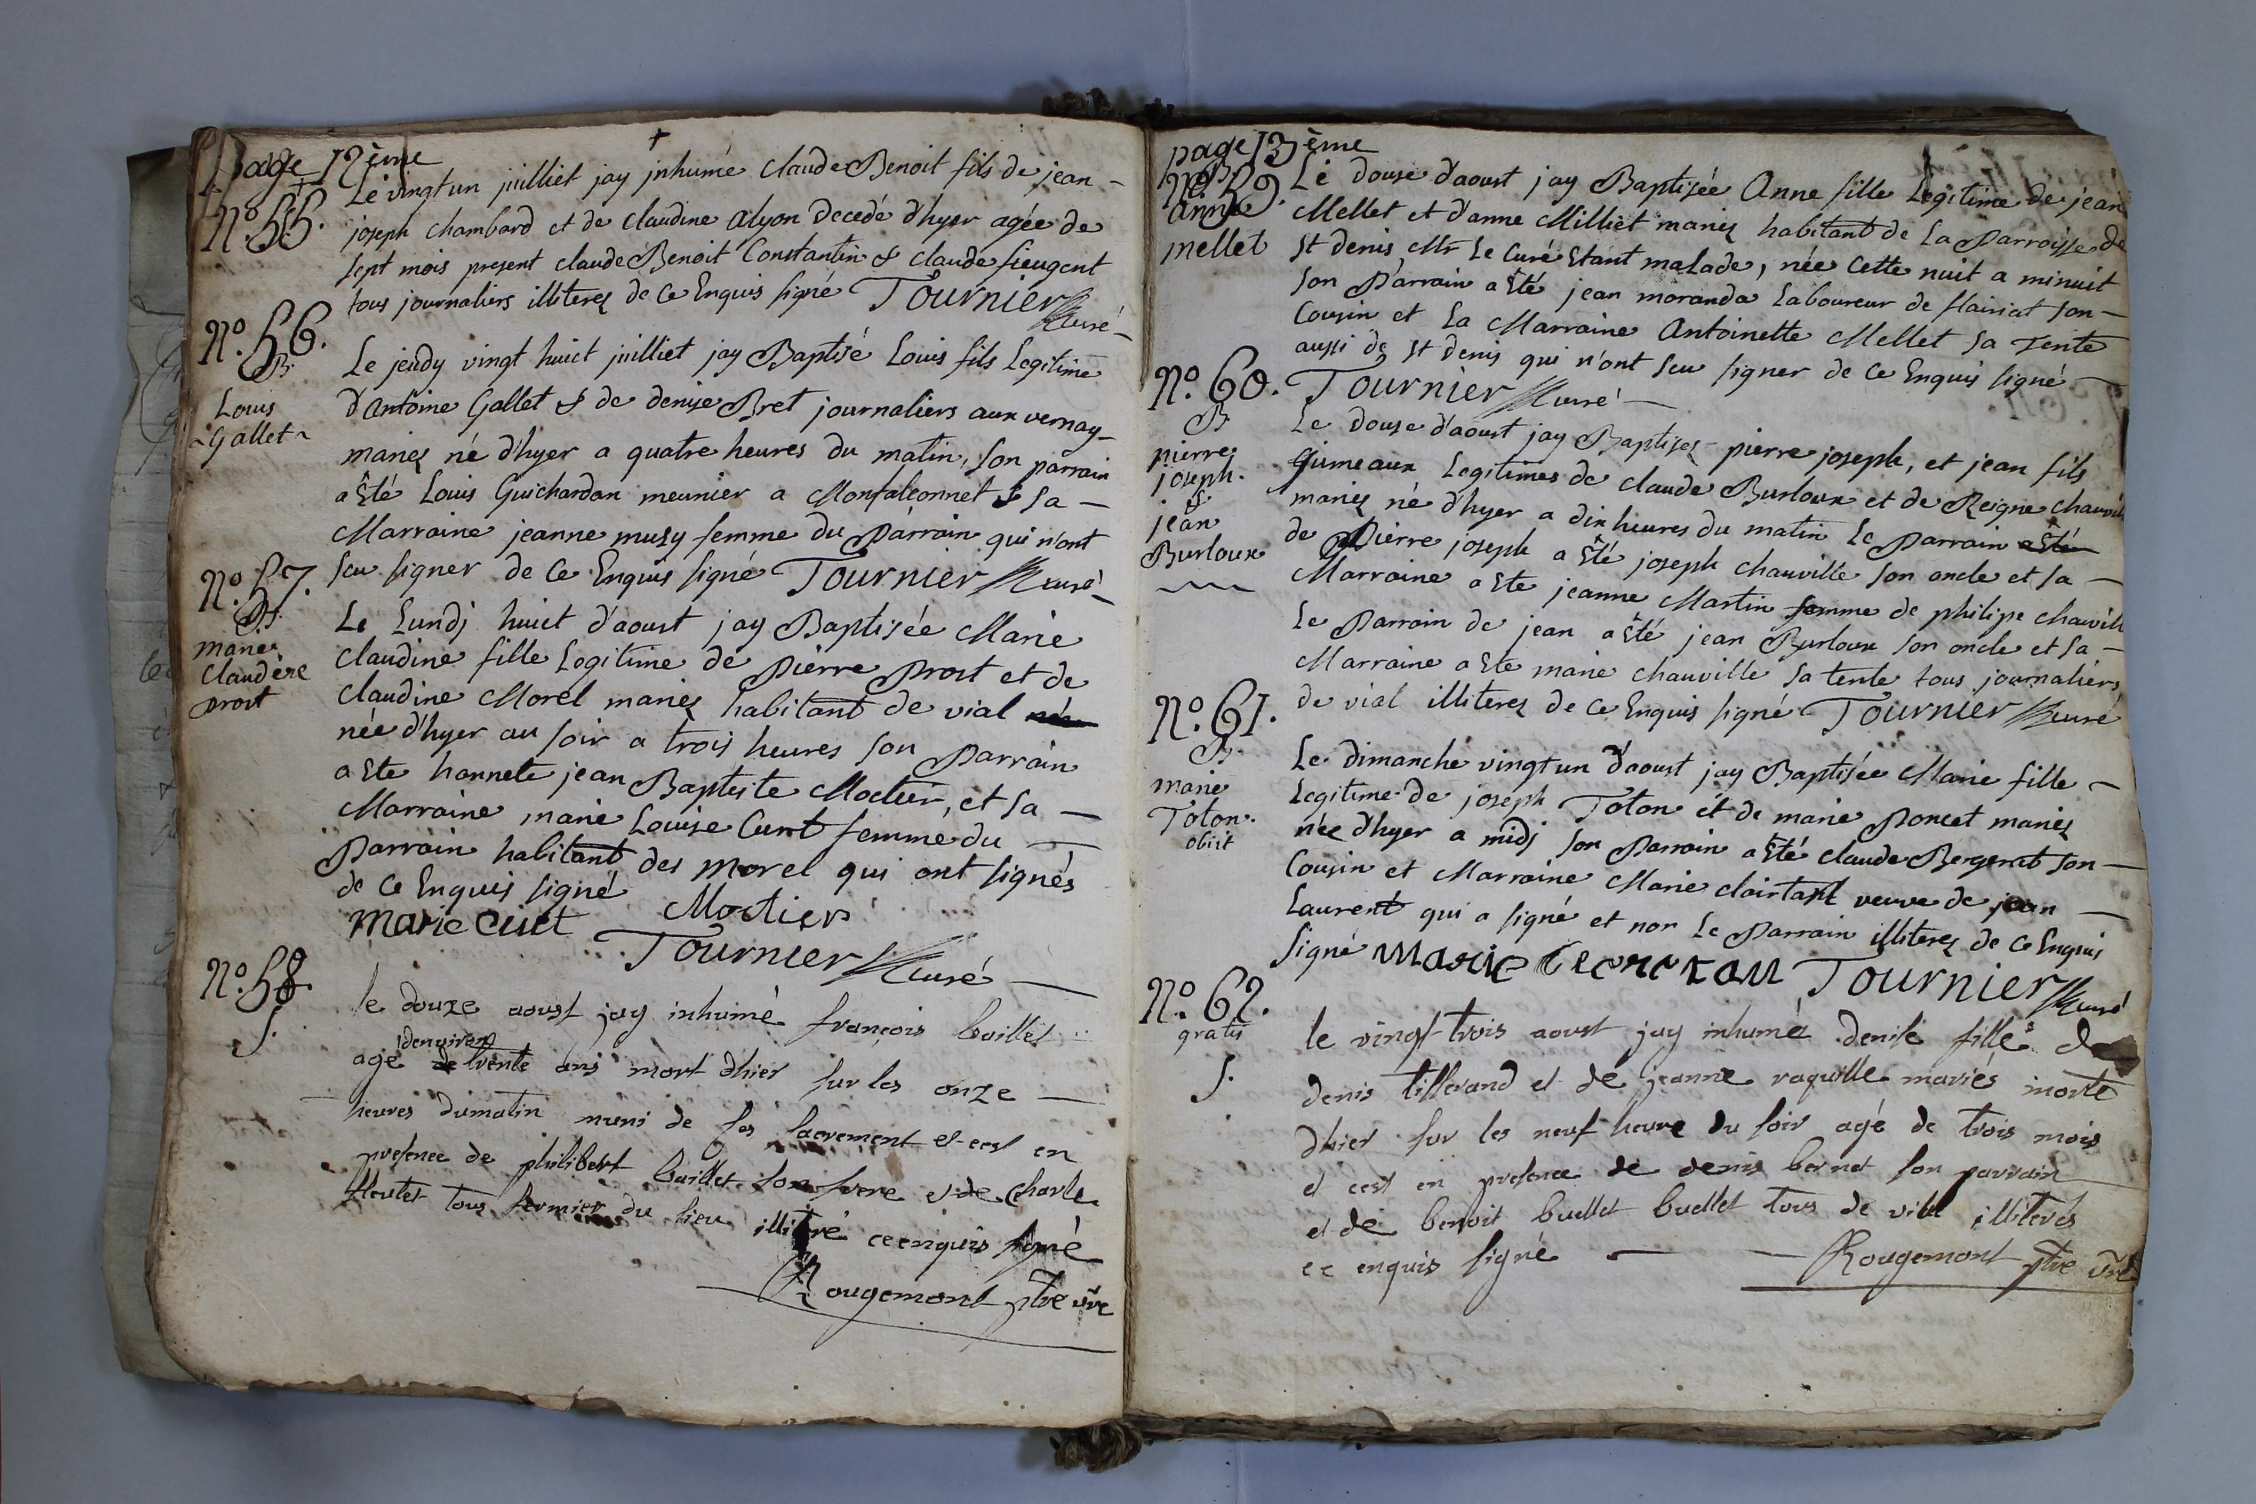 page 12ème
N.º 55.
Le vingt un juilliet jay jnhumé claude Benoit fils de jean -
joseph chambard et de claudine alyon decedé d'hyer agée de
sept mois present claude Benoit Constantin & claude fieugent
tous journaliers illiterez de ce Enquis signé Tournier Curé
N.º 56.
B.
Louis
Gallet
Le jeudy vingt huict juilliet jay Baptisé Louis fils Legitime
d'antoine Gallet & de denise Bret journaliers aux vernay
mariez né d'hyer a quatre heures du matin, son parrain
a Eté Louis Guichardan meunier a Monfalconnet & sa -
Marraine jeanne musy femme du Parrain qui n'ont
seu signer de ce Enquis signé Tournier Curé
N.º 57.
B.
marie
claudère
prost
Le Lundj huict d'aoust jay Baptisée Marie
claudine fille Legitime de Pierre Prost et de
claudine Morel mariez habitant de vial
née d'hyer au soir a trois heures son Parrain
a Ete honnete jean Baptiste Moctier, et sa -
Marraine marie Louise Curt femme du
Parrain habitant des Morel qui ont signés
de ce Enquis signé
marie curt Moctier
Tournier Curé
N.º 58.
S.
le douze aoust jay inhumé françois buillet
agé denviron trente ans mort dhier sur les onze
heures dumatin muni de ses sacrement et cest en
presence de philibert buillet son frere et de charle
tous fermier du lieu illitré ce enquis signé
Rougemont ptre vre
page 13ème
N.º 59.
B.
anne
mellet
Le douse d'aoust jay Baptisée Anne fille Legitime de jean
Mellet et d'anne Milliet mariez habitant de La Parroisse de
st denis, Mr Le Curé Etant malade, née cette nuit a minuit
son Parrain a Eté jean moranda Laboureur de flairiat son -
Cousin et La Marraine Antoinette Mellet sa Tente
aussi de st denis qui n'ont seu signer de ce Enquis signé
Tournier Curé
N.º 60.
B.
pierre
joseph.
&
jean
Burloux
Le douse d'aoust jay Baptisez pierre joseph, et jean fils
Gumeaux Legitimes de claude Burloux et de Reigne chauvill
mariez né d'hyer a dix heures du matin Le Parrain a Eté
de Pierre joseph a Eté joseph chauville son oncle et sa -
Marraine a Ete jeanne Martin femme de philipe chauvill
Le Parrain de jean a Eté jean Burloux son oncle et sa -
Marraine a Ete marie chauville sa tente tous journaliers
de vial illiterez de ce Enquis signé Tournier Curé
N.º 61.
B.
marie
Toton.
obiit
Le dimanche vingt un d'aoust jay Baptisée Marie fille -
Legitime de joseph Toton et de marie Poncet mariez
née d'hyer a midj son Parrain a Eté claude Bergerat son -
Cousin et Marraine Marie clairtant veuve de jean
Laurent qui a signé et non Le Parrain illiterez de ce Enquis
signé Marie Tournier Curé
N.º 62.
gratis
S.
le vingt trois aoust jay inhumé denise fille de
denis tisserand et de jeanne raquille mariés morte
dhier sur les neuf heure du soir agé de trois mois
et cest en presence de denis bernet son parrain
et de benoit buellet buellet tous de vial illiterés
ce enquis signé Rougemont ptre vre